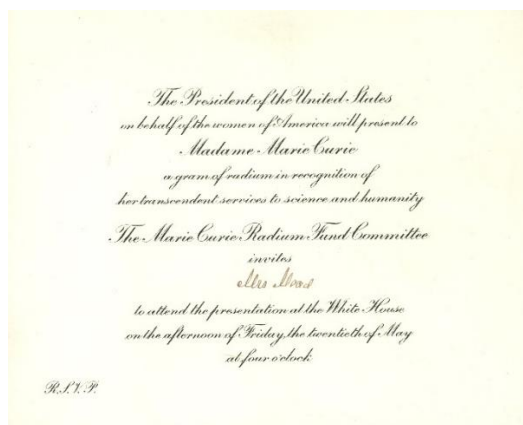 The President of the United States
on behalf of the women of America will present to
Madame Marie Curie
a gram of radium in recognition of
her transcendent services to science and humanity
The Marie Curie Radium Fund Committee
invites
Mrs Mead
to attend the presentation at the White House
on the afternoon of Friday, the twentieth of May
at four o'clock
R.S.V.P.